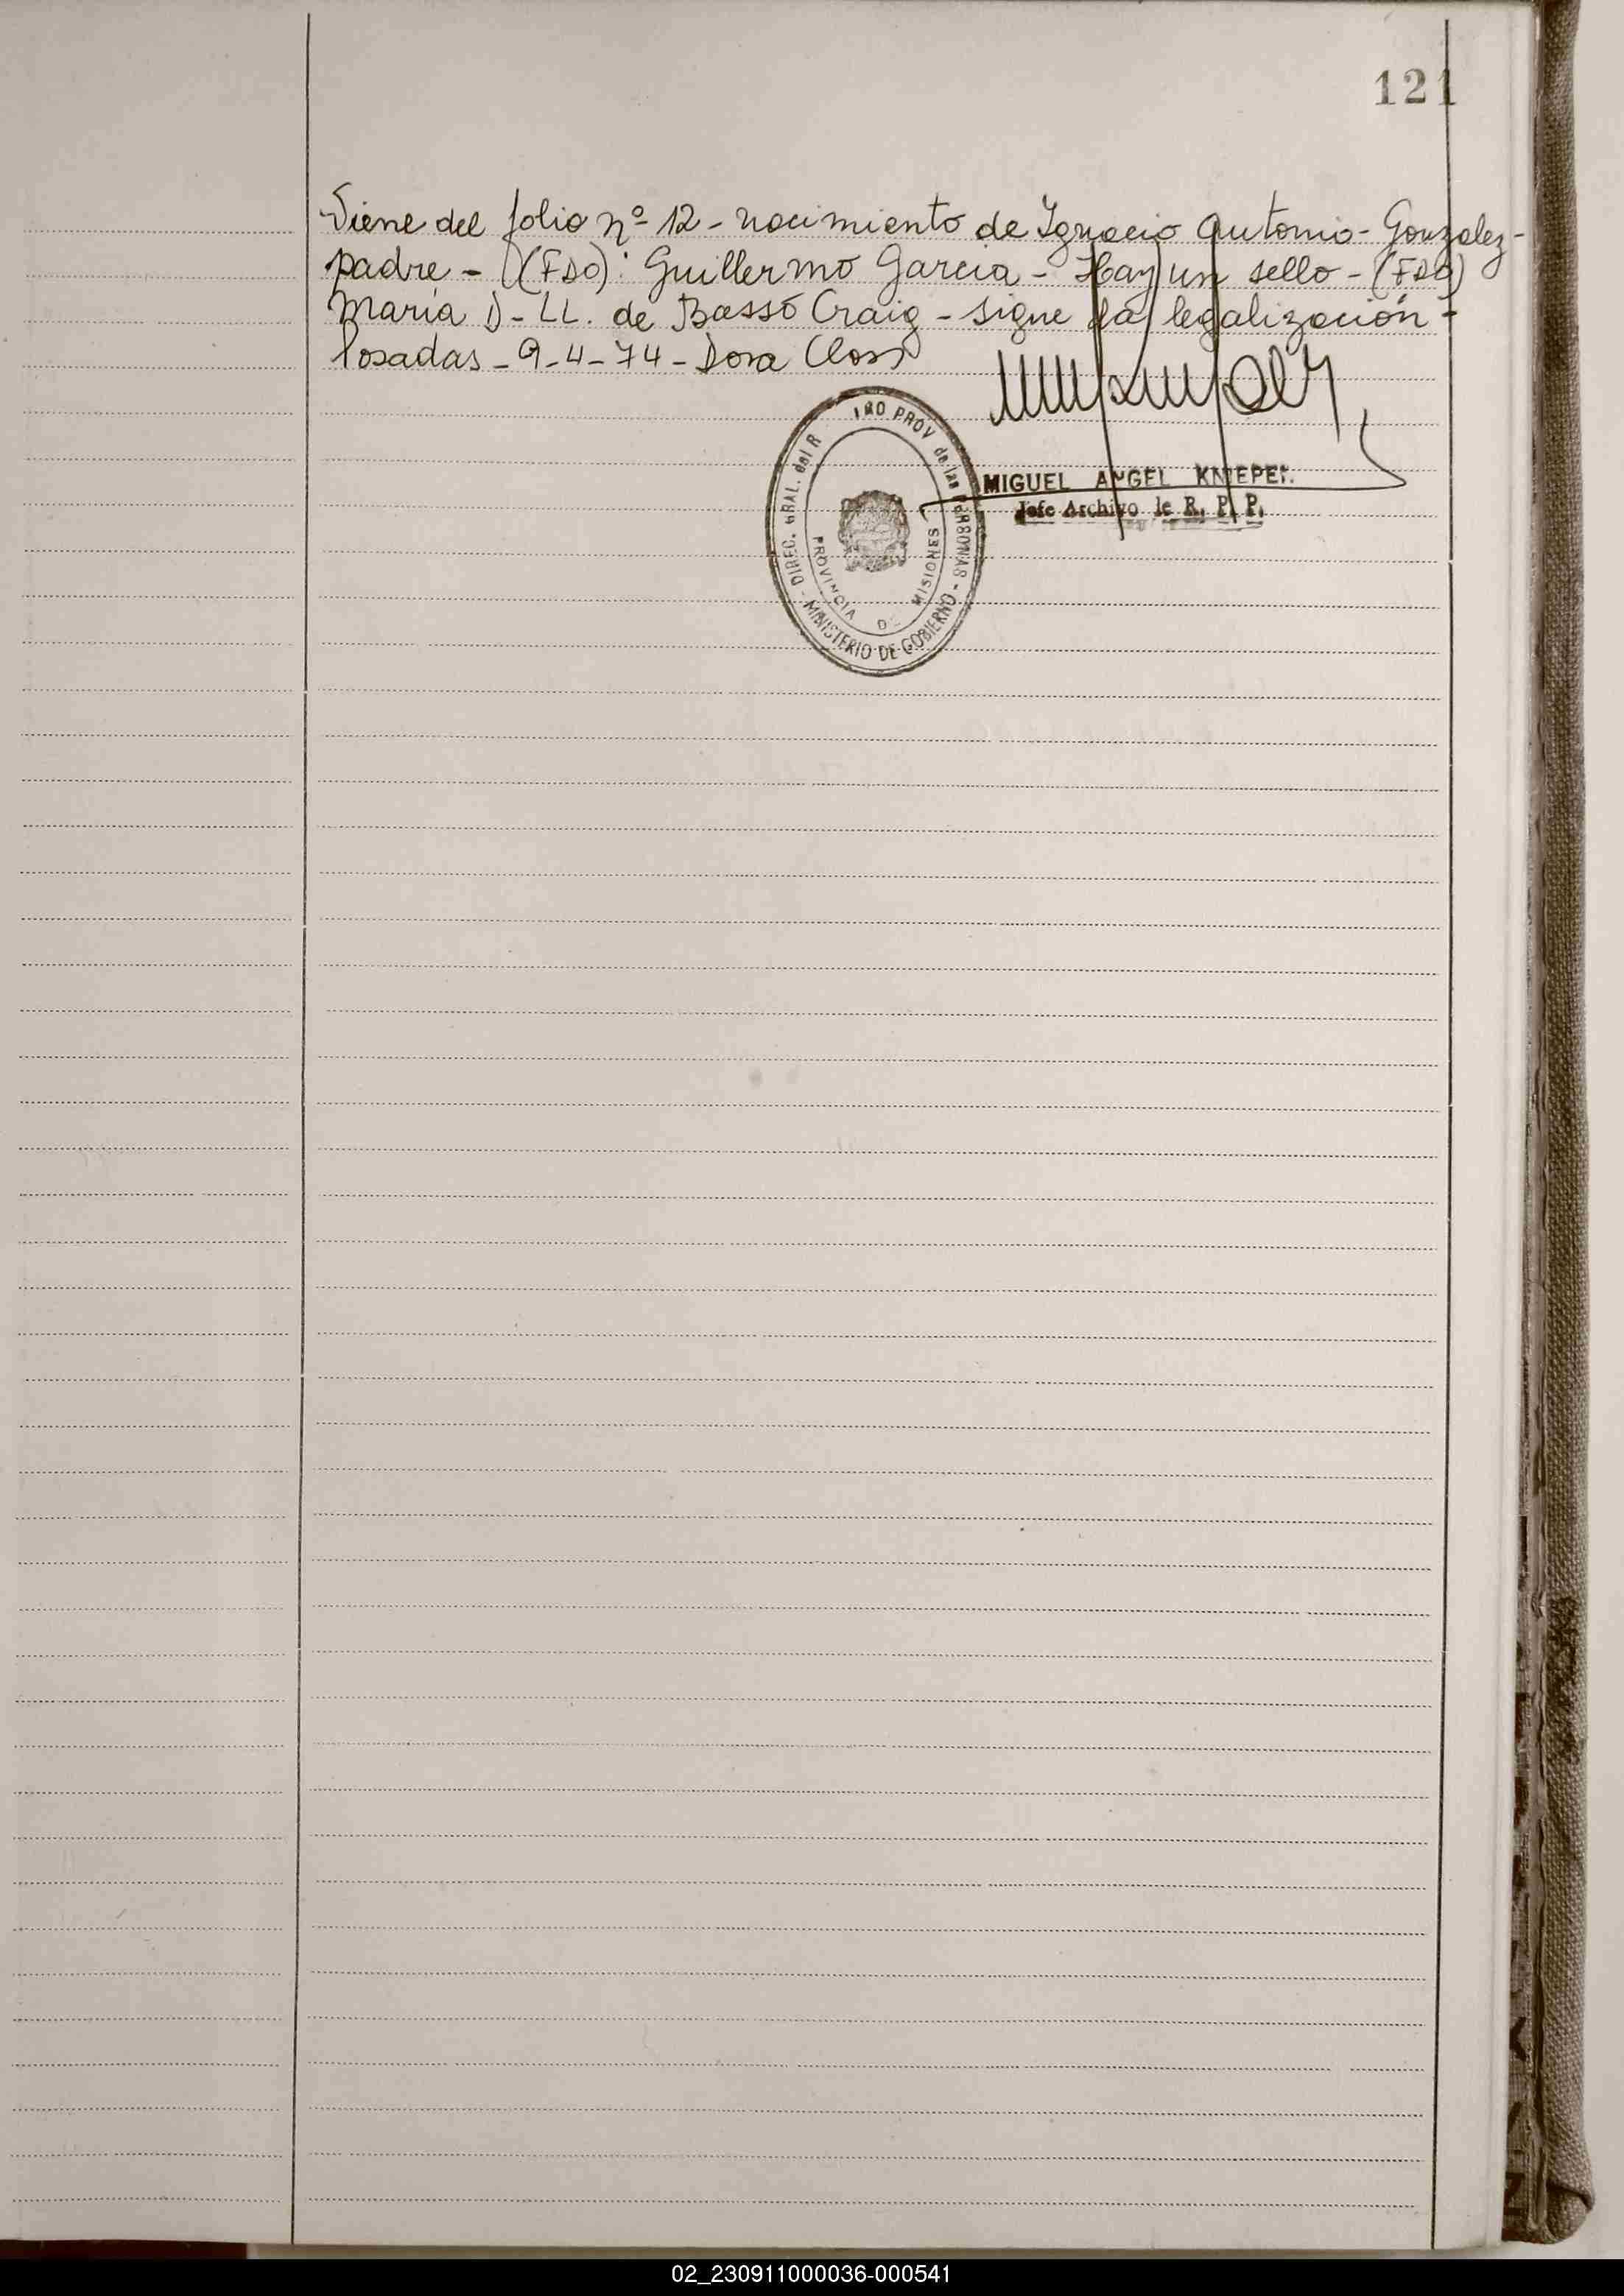 121
Viene del folio nº 12 - nacimiento de Ignacio Antonio - Gonzalez -
padre - (Fdo): Guillermo Garcia - Hay un sello - (Fdo)
María D - LL. de Basso Craig - sigue la legalización -
Posadas - 9-4-74 - Dora Closs
MIGUEL ANGEL
Jefe Archivo de R. P. P.
DIREC. GRAL. del R IMO PROV de las PERSONAS - MINISTERIO DE GOBIERNO -
PROVINCIA DE MISIONES
02_230911000036-000541